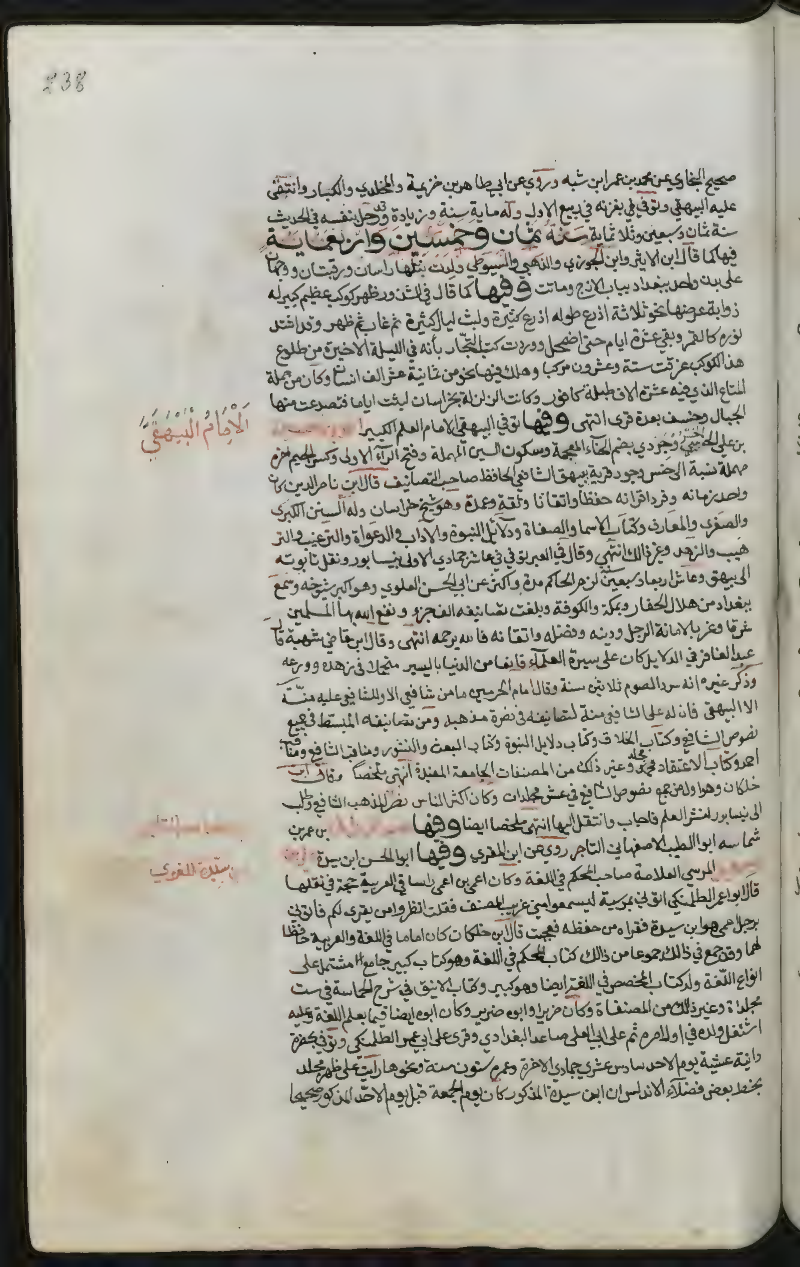 238
صحيح البخاري عن محمد بن عمر ابن شبه وروي عن ابي طاهر بن خزيمة والمخلدي والكبار وانتقى
عليه البيهقي وتوفي في بغزنه في ربيع الاول وله ماية سنة وزيادة وقد رحل بنفسه في الحديث
سنة ثمان وسبعين وثلاثماية سنة ثمان وخمسين واربعماية
فيها كما قال ابن الاثير وابن الجوزي والذهبي والسيوطي ولدت بنتا لها راسان ورقبتان ووجهان
على بدن واحد ببغداد بباب الازج وماتت وفيها كما قال في الشذور ظهر كوكب عظيم كبير له
ذوابة عرضها نحو ثلاثة اذرع طوله اذرع كثيرة ولبث ليال كثيرة ثم غاب ثم ظهر وقد اشتد
نوره كالقمر وبقي عشرة ايام حتى اضمحل ووردت كتب التجار بأنه في الليلة الاخيرة من طلوع
هذا الكوكب غرقت ستة وعشرون مركبا وهلك فيها نحو من ثمانية عشر الف انسان وكان من جملة
المتاع الذي فيه عشرة الاف طبلة كافور وكانت الزلزلة بخراسان لبثت اياما فتصدعت منها
الجبال وخسف بعدة قرى انتهى وفيها توفي البيهقي الامام العلم الكبير
الإمام البيهقي
بن علي الخسروجردي بضم الخاء المعجمة وسكون السين المهملة وفتح الراء الاولى وكسر الجيم نحرم
مهملة نسبة الى خسروجرد قرية ببيهق الشافعي الحافظ صاحب التصانيف قال ابن ناصر الدين كان
واحد زمانه وفرد اقرانه حفظا واتقانا وثقة وعمدة وهو شيخ خراسان وله السنن الكبرى
والصغرى والمعارف وكتاب الاسما والصفاة ودلائل النبوة والاداب والدعواة والترغيب والتر
هيب والزهد وغير ذالك انتهى وقال في العبر توفي في عاشر جمادي الاولى بنيسابور ونقل تابوته
الى بيهق وعاش اربعا وسبعين سنة لزم الحاكم مدة واكثر عن ابي الحسن العلوي وهو اكبر شيوخه وسمع
ببغداد من هلال الحفار وبمكة والكوفة وبلغت تصانيفه الف جزو ونفع الله بها المسلمين
شرقا وغربا لامانة الرجل ودينه وفضله واتقانه فالله يرحمه انتهى وقال ابن قاضي شهبة قال
عبد الغافر في الدلايل كان على سيرة العلمآء قانعا من الدنيا باليسير متجملا في زهده وورعه
وذكر غيره انه سرد الصوم ثلاثين سنة وقال امام الحرمين ما من شافعي الا وللشافعي عليه منة
الا البيهقي فان له على الشافعي منة لتصانيفه في نصرة مذهبه ومن تصانيفه المبسط في جمع
نصوص الشافعي وكتاب الخلاف وكتاب دلايل النبوة وكتاب البعث والنشور ومناقب الشافعي ومناقب
احمد وكتاب الاعتقاد مجلد وغير ذلك من المصنفات الجامعة المفيدة انتهى ملخصا وقال ابن
خلكان وهو اول من جمع نصوص الشافعي في عشر مجلدات وكان اكثر الناس نصرا لمذهب الشافعي وطلب
الى نيسابور لنشر العلم فاجاب وانتقل اليها انتهى ملخصا ايضا وفيها بن عمر بن
شماسه ابو الطيب الاصفهاني التاجر روى عن ابن المقري وفيها ابو الحسن ابن سيدة
بن سيدة اللغوي
المرسي العلامة صاحب المحكم في اللغة وكان اعمى بن اعمى راسا في العربية حجة في نقلها
قال ابو اعمر الطلمنكي اتوني بمرسية ليسمعوا مني غريب المصنف فقلت انظروا من يقرى لكم فاتوني
برجل اعمى هو ابن سيدة فقراه من حفظه فعجبت قال ابن خلكان كان اماما في اللغة والعربية حافظا
لهما وقد جمع في ذالك جموعا من ذالك كتاب المحكم في اللغة وهو كتاب كبير جامع مشتمل على
انواع اللغة وله كتاب المخصص في اللغة ايضا وهو كبير وكتاب الانيق في شرح الحماسة في ست
مجلداة وغير ذالك من المصنفاة وكان ضريرا وابوه ضرير وكان ابوه ايضا قيما بعلم اللغة وعليه
اشتغل ولده في اول امره ثم على ابي العلى صاعد البغدادي وقرى على ابي عمر الطلمنكي وتوفي بحضرة
دانية عشية يوم الاحد سادس عشري جمادي الاخرة وعمره ستون سنة ونحوها رايت على ظهر مجلد
بخط بعض فضلآء الاندلس ان ابن سيدة المذكور كان يوم الجمعة قبل يوم الاحد المذكور صحيحا